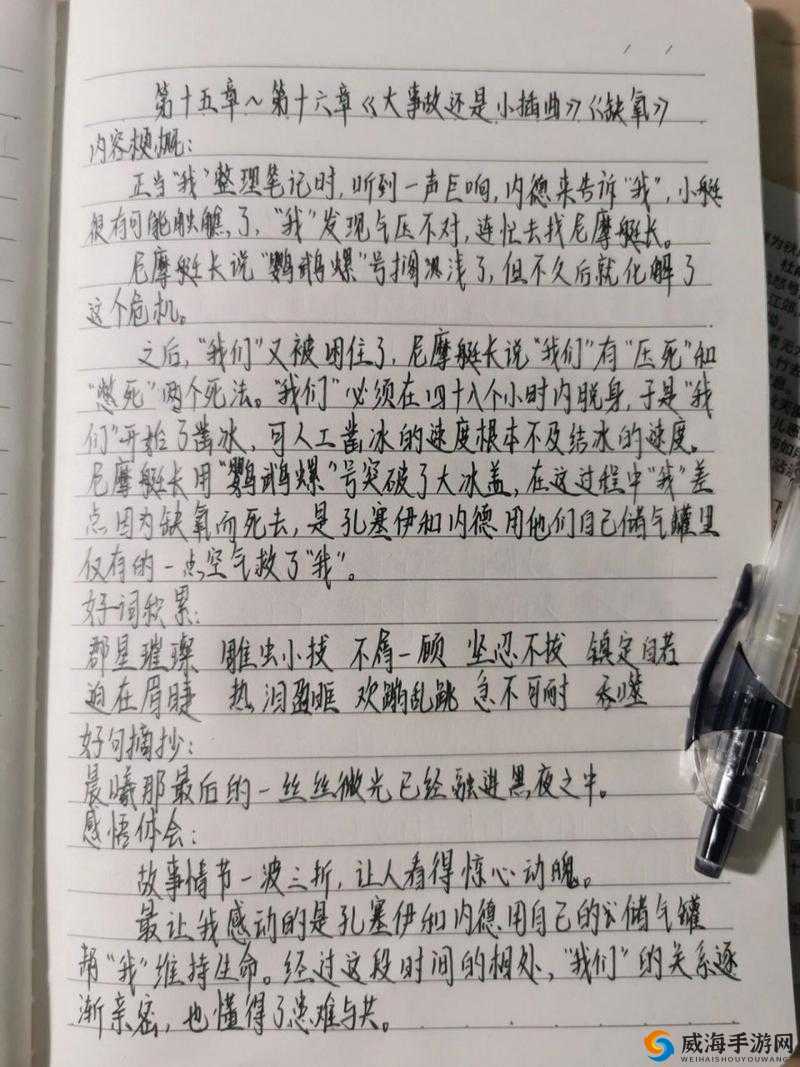 第十五章~第十六章《大事故还是小插曲》《缺氧》
内容梗概：
正当"我"整理笔记时，听到一声巨响，内德来告诉"我"，小艇
很有可能触礁了，"我"发现气压不对，连忙去找尼摩艇长。
尼摩艇长说"鹦鹉螺"号搁浅了，但不久后就化解了
这个危机。
之后，"我们"又被困住了，尼摩艇长说"我们"有"压死"和
"憋死"两个死法。"我们"必须在四十八个小时内脱身，于是"我
们"开始了凿冰，可人工凿冰的速度根本不及结冰的速度。
尼摩艇长用"鹦鹉螺"号突破了大冰盖，在这过程中"我"差
点因为缺氧而死去，是孔塞伊和内德用他们自己储气罐里
仅有的一点空气救了"我"。
好词积累：
群星璀璨 雕虫小技 不屑一顾 坚忍不拔 镇定自若
迫在眉睫 热泪盈眶 欢蹦乱跳 急不可耐 吞噬
好句摘抄：
晨曦那最后的一丝丝微光已经融进黑夜之中。
感悟体会：
故事情节一波三折，让人看得惊心动魄。
最让我感动的是孔塞伊和内德用自己的储气罐
帮"我"维持生命。经过这段时间的相处，"我们"的关系逐
渐亲密，也懂得了患难与共。
威海手游网
WEIHAISHOUYOUWANG